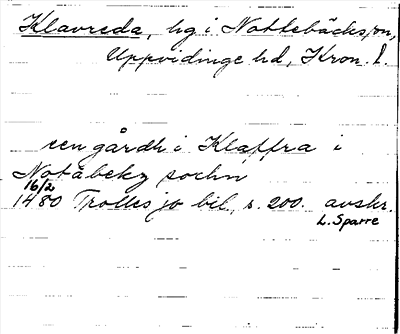 Klavreda, hg i Nottebäcks sn,
Uppvidinge hd, Kron. l.
een gårdh i Klaffra i
Notabekz sochn
16/2
1480 Trolles jo bil, s. 200. avskr.
L. Sparre